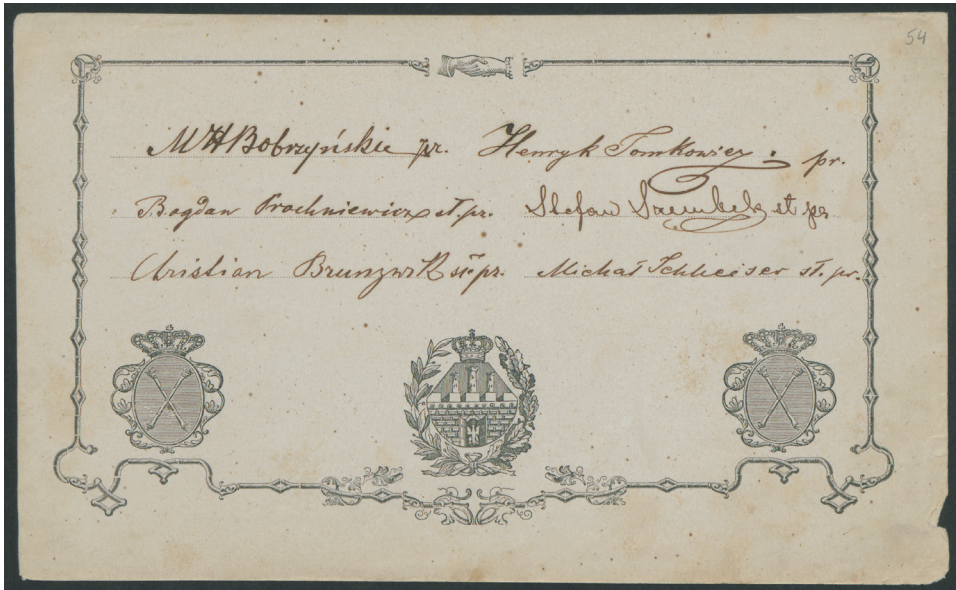 54
MHBobrzyński pr. Henryk Tomkowicz. pr.
Bogdan Prochniewicz st. pr. Stefan Szembek st pr
Christian Brunzwik st. pr. Michał Schleiser st. pr.